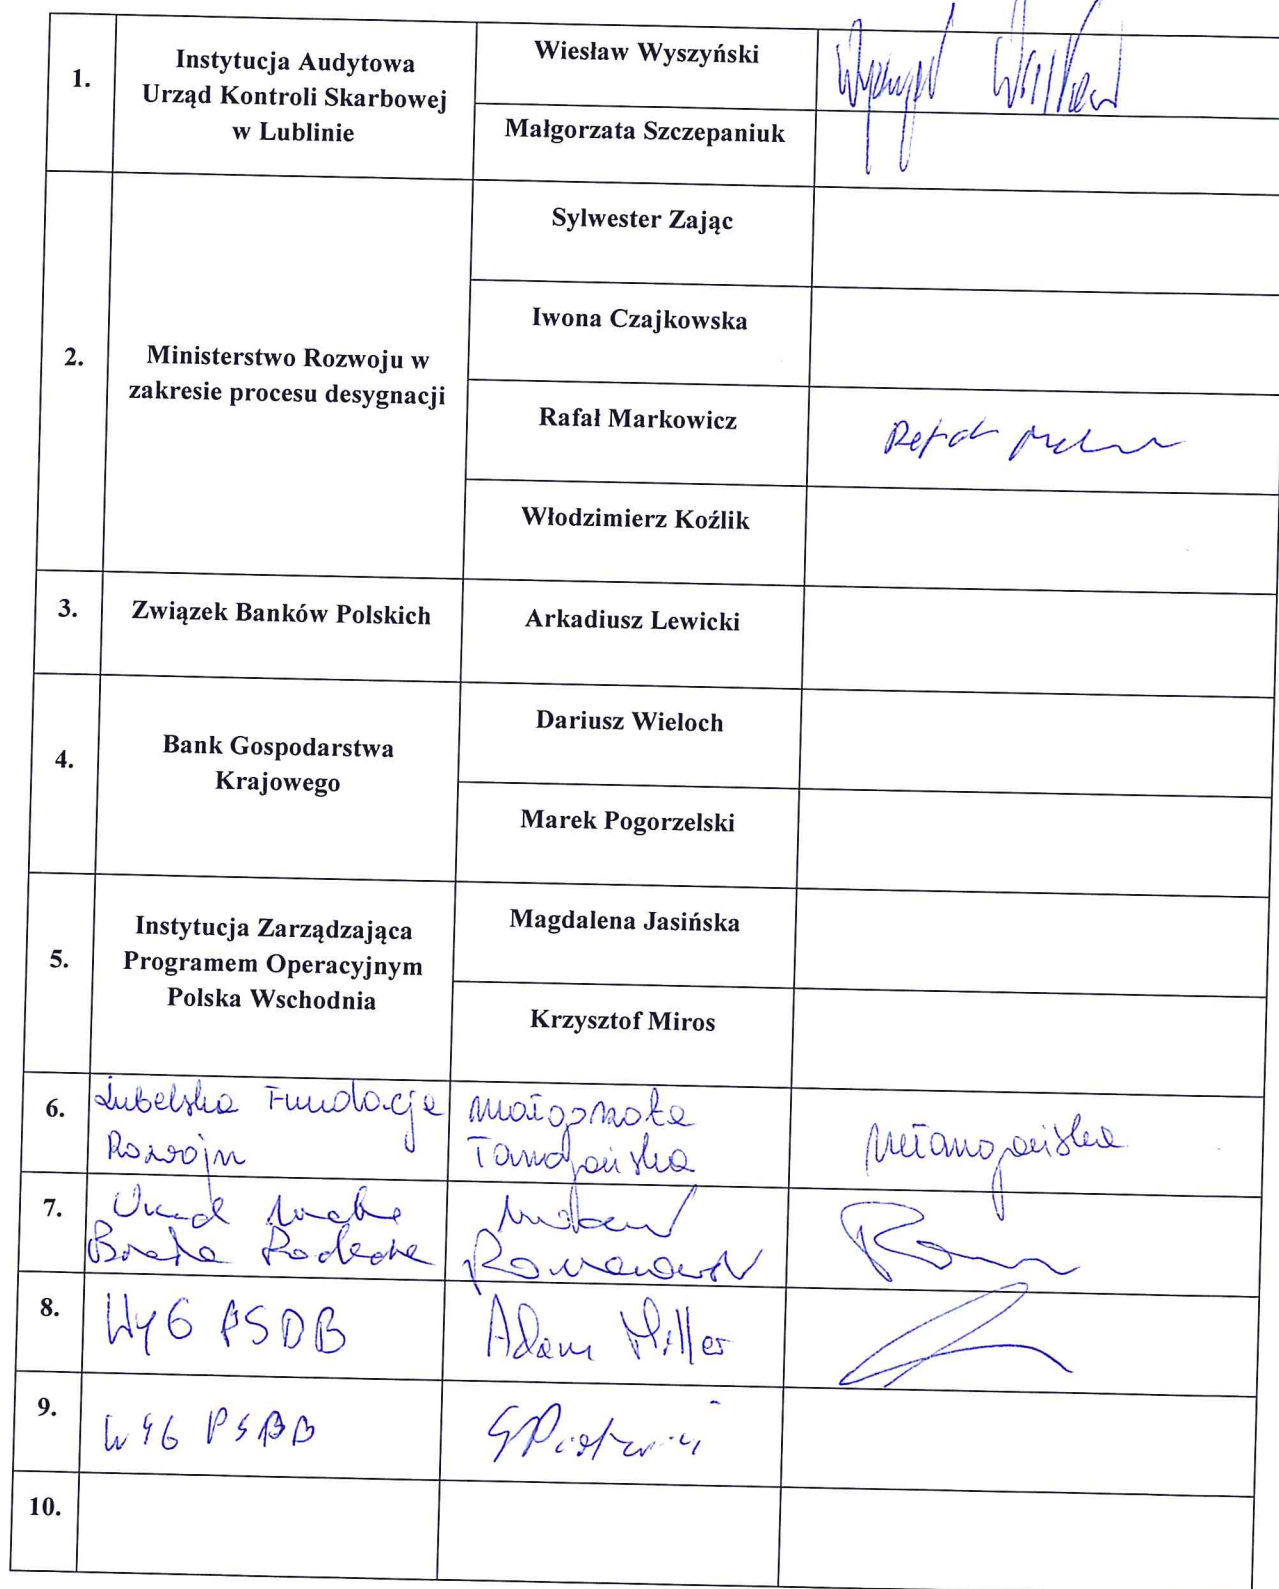 1.
Instytucja Audytowa
Urząd Kontroli Skarbowej
w Lublinie
Wiesław Wyszyński
Małgorzata Szczepaniuk
2.
Ministerstwo Rozwoju w
zakresie procesu desygnacji
Sylwester Zając
Iwona Czajkowska
Rafał Markowicz
Włodzimierz Koźlik
3.
Związek Banków Polskich
Arkadiusz Lewicki
4.
Bank Gospodarstwa
Krajowego
Dariusz Wieloch
Marek Pogorzelski
5.
Instytucja Zarządzająca
Programem Operacyjnym
Polska Wschodnia
Magdalena Jasińska
Krzysztof Miros
6.
Lubelska Fundacja
Rozwoju
Małgorzata
7.
8.
WYG PSDB
Adam Miller
9.
WYG PSDB
10.